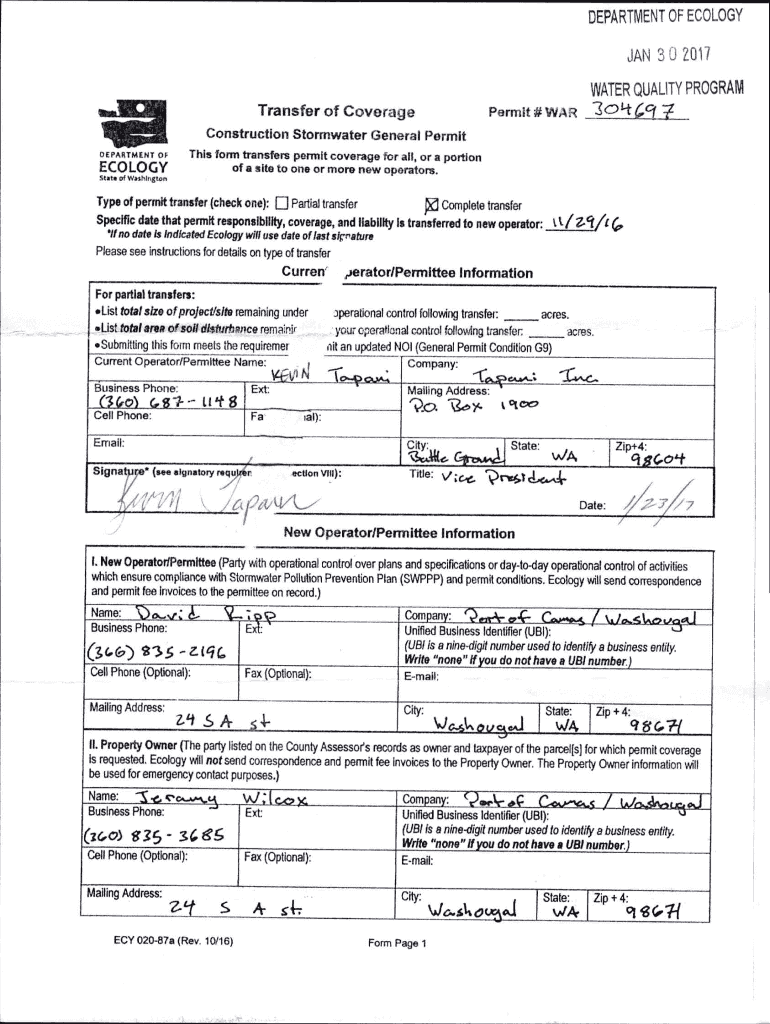 DEPARTMENT OF ECOLOGY
JAN 30 2017
WATER QUALITY PROGRAM
Transfer of Coverage Permit # WAR 304697
Construction Stormwater General Permit
DEPARTMENT OF
ECOLOGY
State of Washington
This form transfers permit coverage for all, or a portion
of a site to one or more new operators.
Type of permit transfer (check one): ☐ Partial transfer ☒ Complete transfer
Specific date that permit responsibility, coverage, and liability is transferred to new operator: 11/29/16
*If no date is indicated Ecology will use date of last signature
Please see instructions for details on type of transfer
Curren erator/Permittee Information
For partial transfers:
•List total size of project/site remaining under operational control following transfer: ______ acres.
•List total area of soil disturbance remainir your operational control following transfer: ______ acres.
•Submitting this form meets the requiremer nit an updated NOI (General Permit Condition G9)
Current Operator/Permittee Name: KEVIN Tapani
Company: Tapani Inc.
Business Phone: (360) 687-1148
Ext:
Mailing Address: P.O. Box 1900
Cell Phone:
Fa al):
Email:
City: Battle Ground
State: WA
Zip+4: 98604
Signature* (see signatory requirer ection VIII):
Kevin Tapani
Title: Vice President
Date: 1/23/17
New Operator/Permittee Information
I. New Operator/Permittee (Party with operational control over plans and specifications or day-to-day operational control of activities
which ensure compliance with Stormwater Pollution Prevention Plan (SWPPP) and permit conditions. Ecology will send correspondence
and permit fee invoices to the permittee on record.)
Name: David Ripp
Company: Port of Camas / Washougal
Business Phone: (360) 835-2196
Ext:
Unified Business Identifier (UBI):
(UBI is a nine-digit number used to identify a business entity.
Write "none" if you do not have a UBI number.)
Cell Phone (Optional):
Fax (Optional):
E-mail:
Mailing Address: 24 S A st
City: Washougal
State: WA
Zip + 4: 98671
II. Property Owner (The party listed on the County Assessor's records as owner and taxpayer of the parcel[s] for which permit coverage
is requested. Ecology will not send correspondence and permit fee invoices to the Property Owner. The Property Owner information will
be used for emergency contact purposes.)
Name: Jeramy Wilcox
Company: Port of Camas / Washougal
Business Phone: (360) 835-3685
Ext:
Unified Business Identifier (UBI):
(UBI is a nine-digit number used to identify a business entity.
Write "none" if you do not have a UBI number.)
Cell Phone (Optional):
Fax (Optional):
E-mail:
Mailing Address: 24 S A st.
City: Washougal
State: WA
Zip + 4: 98671
ECY 020-87a (Rev. 10/16) Form Page 1